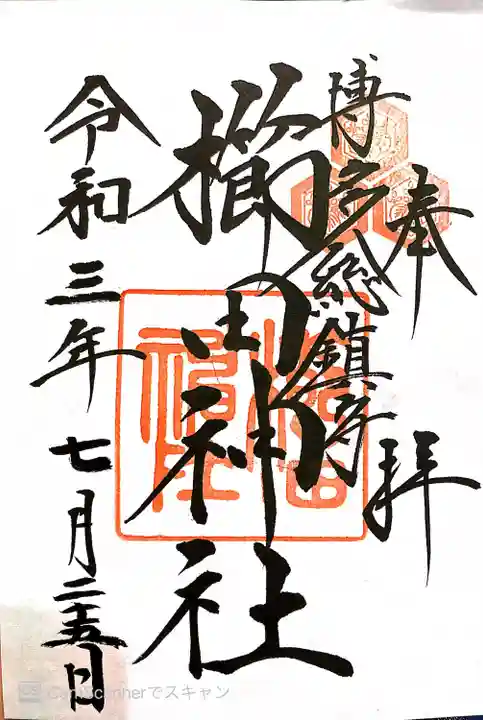 奉拝
博多総鎮守
櫛田神社
令和三年七月二十五日
CamScannerでスキャン